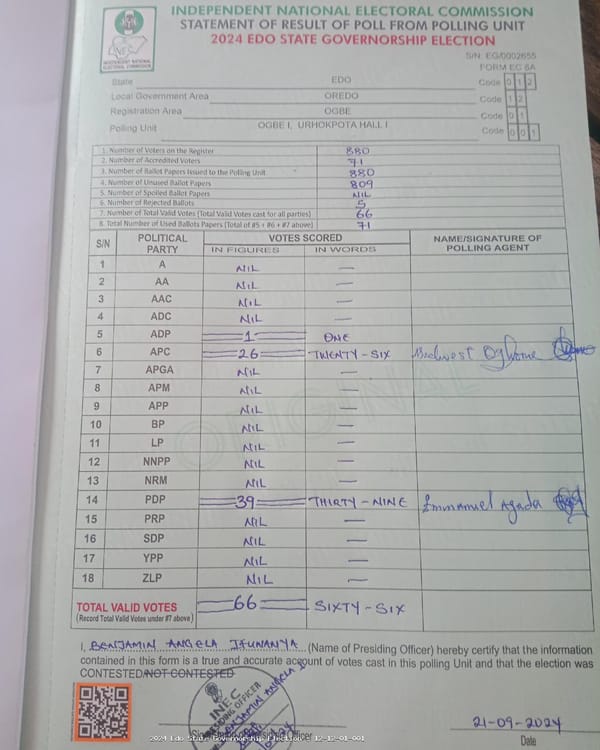 INDEPENDENT NATIONAL ELECTORAL COMMISSION
STATEMENT OF RESULT OF POLL FROM POLLING UNIT
2024 EDO STATE GOVERNORSHIP ELECTION
INEC
INDEPENDENT NATIONAL ELECTORAL COMMISSION
S/N: EG/0002655
FORM EC 8A
State EDO Code 0 1 2
Local Government Area OREDO Code 1 2
Registration Area OGBE Code 0 1
Polling Unit OGBE I, URHOKPOTA HALL I Code 0 0 1
1. Number of Voters on the Register 880
2. Number of Accredited Voters 71
3. Number of Ballot Papers Issued to the Polling Unit 880
4. Number of Unused Ballot Papers 809
5. Number of Spoiled Ballot Papers NIL
6. Number of Rejected Ballots 5
7. Number of Total Valid Votes (Total Valid Votes cast for all parties) 66
8. Total Number of Used Ballots Papers (Total of #5 + #6 + #7 above) 71
S/N POLITICAL PARTY VOTES SCORED NAME/SIGNATURE OF POLLING AGENT
IN FIGURES IN WORDS
1 A NIL —
2 AA NIL —
3 AAC NIL —
4 ADC NIL —
5 ADP 1 ONE
6 APC 26 TWENTY-SIX
7 APGA NIL —
8 APM NIL —
9 APP NIL —
10 BP NIL —
11 LP NIL —
12 NNPP NIL —
13 NRM NIL —
14 PDP 39 THIRTY-NINE Emmanuel Agada
15 PRP NIL —
16 SDP NIL —
17 YPP NIL —
18 ZLP NIL —
TOTAL VALID VOTES 66 SIXTY-SIX
(Record Total Valid Votes under #7 above)
ORIGINAL
I, BENJAMIN ANGELA IFUNANYA (Name of Presiding Officer) hereby certify that the information
contained in this form is a true and accurate account of votes cast in this polling Unit and that the election was
CONTESTED/NOT CONTESTED
INEC
PRESIDING OFFICER
BENJAMIN ANGELA I
21-09-2024
Date
2024 Edo State Governorship Election - 12-12-01-001